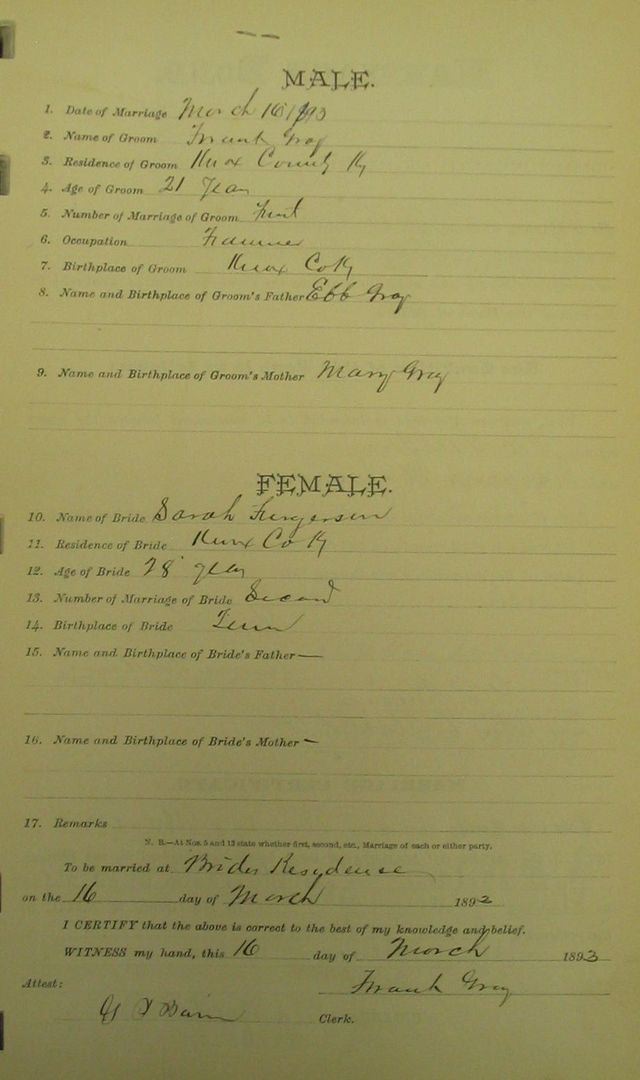 MALE.
1. Date of Marriage March 16 1893
2. Name of Groom Frank Gray
3. Residence of Groom Knox County Ky
4. Age of Groom 21 years
5. Number of Marriage of Groom First
6. Occupation Farmer
7. Birthplace of Groom Knox Co Ky
8. Name and Birthplace of Groom's Father Ebb Gray
9. Name and Birthplace of Groom's Mother Mary Gray
FEMALE.
10. Name of Bride Sarah Furgerson
11. Residence of Bride Knox Co Ky
12. Age of Bride 28 years
13. Number of Marriage of Bride Second
14. Birthplace of Bride Tenn
15. Name and Birthplace of Bride's Father —
16. Name and Birthplace of Bride's Mother —
17. Remarks
N. B.—At Nos. 5 and 13 state whether first, second, etc., Marriage of each or either party.
To be married at Brides Resydence
on the 16 day of March 1893
I CERTIFY that the above is correct to the best of my knowledge and belief.
WITNESS my hand, this 16 day of March 1893
Attest: Frank Gray
Clerk.